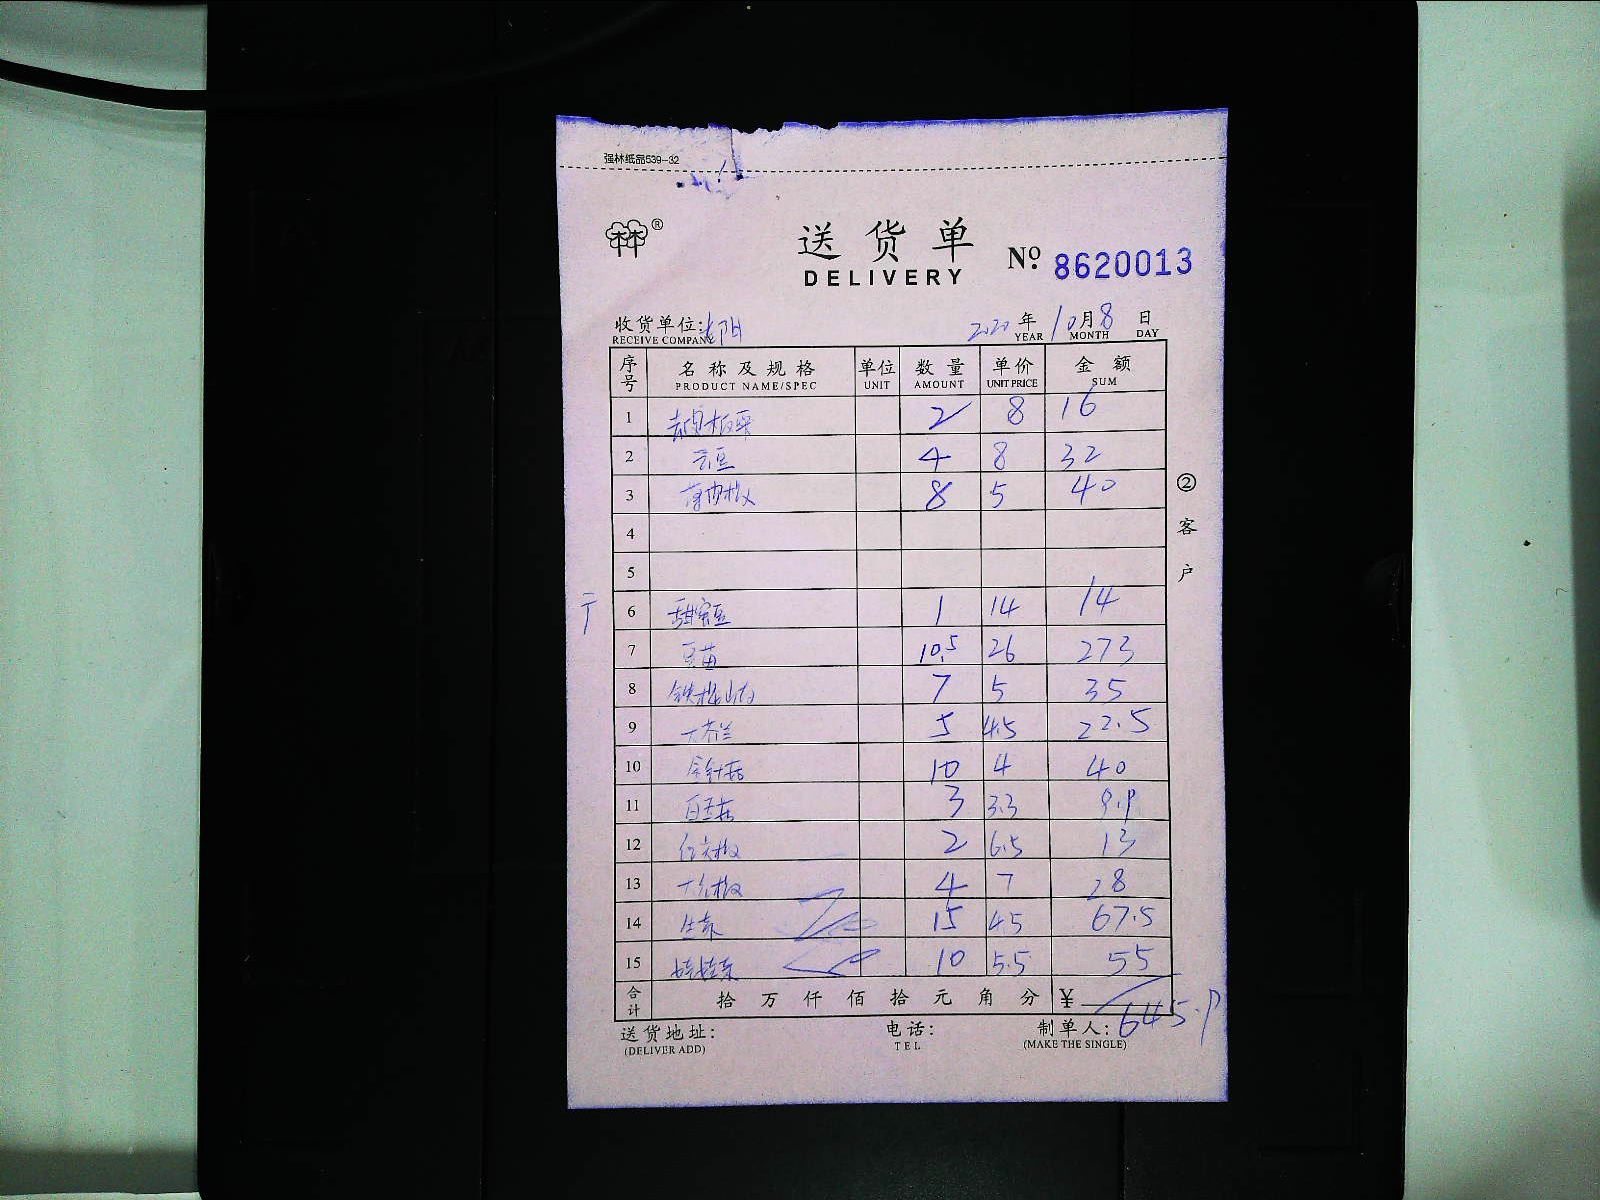 强林纸品539-32
林®
送货单
DELIVERY
Nº. 8620013
收货单位: 阳 2020年10月8日
RECEIVE COMPANY YEAR MONTH DAY
序号 名称及规格 单位 数量 单价 金额
PRODUCT NAME/SPEC UNIT AMOUNT UNIT PRICE SUM
1 2 8 16
2 云豆 4 8 32
3 8 5 40
4
5
6 甜蜜豆 1 14 14
7 豆苗 10.5 26 273
8 铁棍山药 7 5 35
9 大芥兰 5 4.5 22.5
10 金针菇 10 4 40
11 白玉菇 3 3.3 9.9
12 2 6.5 13
13 4 7 28
14 生菜 15 4.5 67.5
15 娃娃菜 10 5.5 55
合计 拾万仟佰拾元角分 ¥ 645.9
送货地址: 电话: 制单人:
(DELIVER ADD) TEL (MAKE THE SINGLE)
②客户